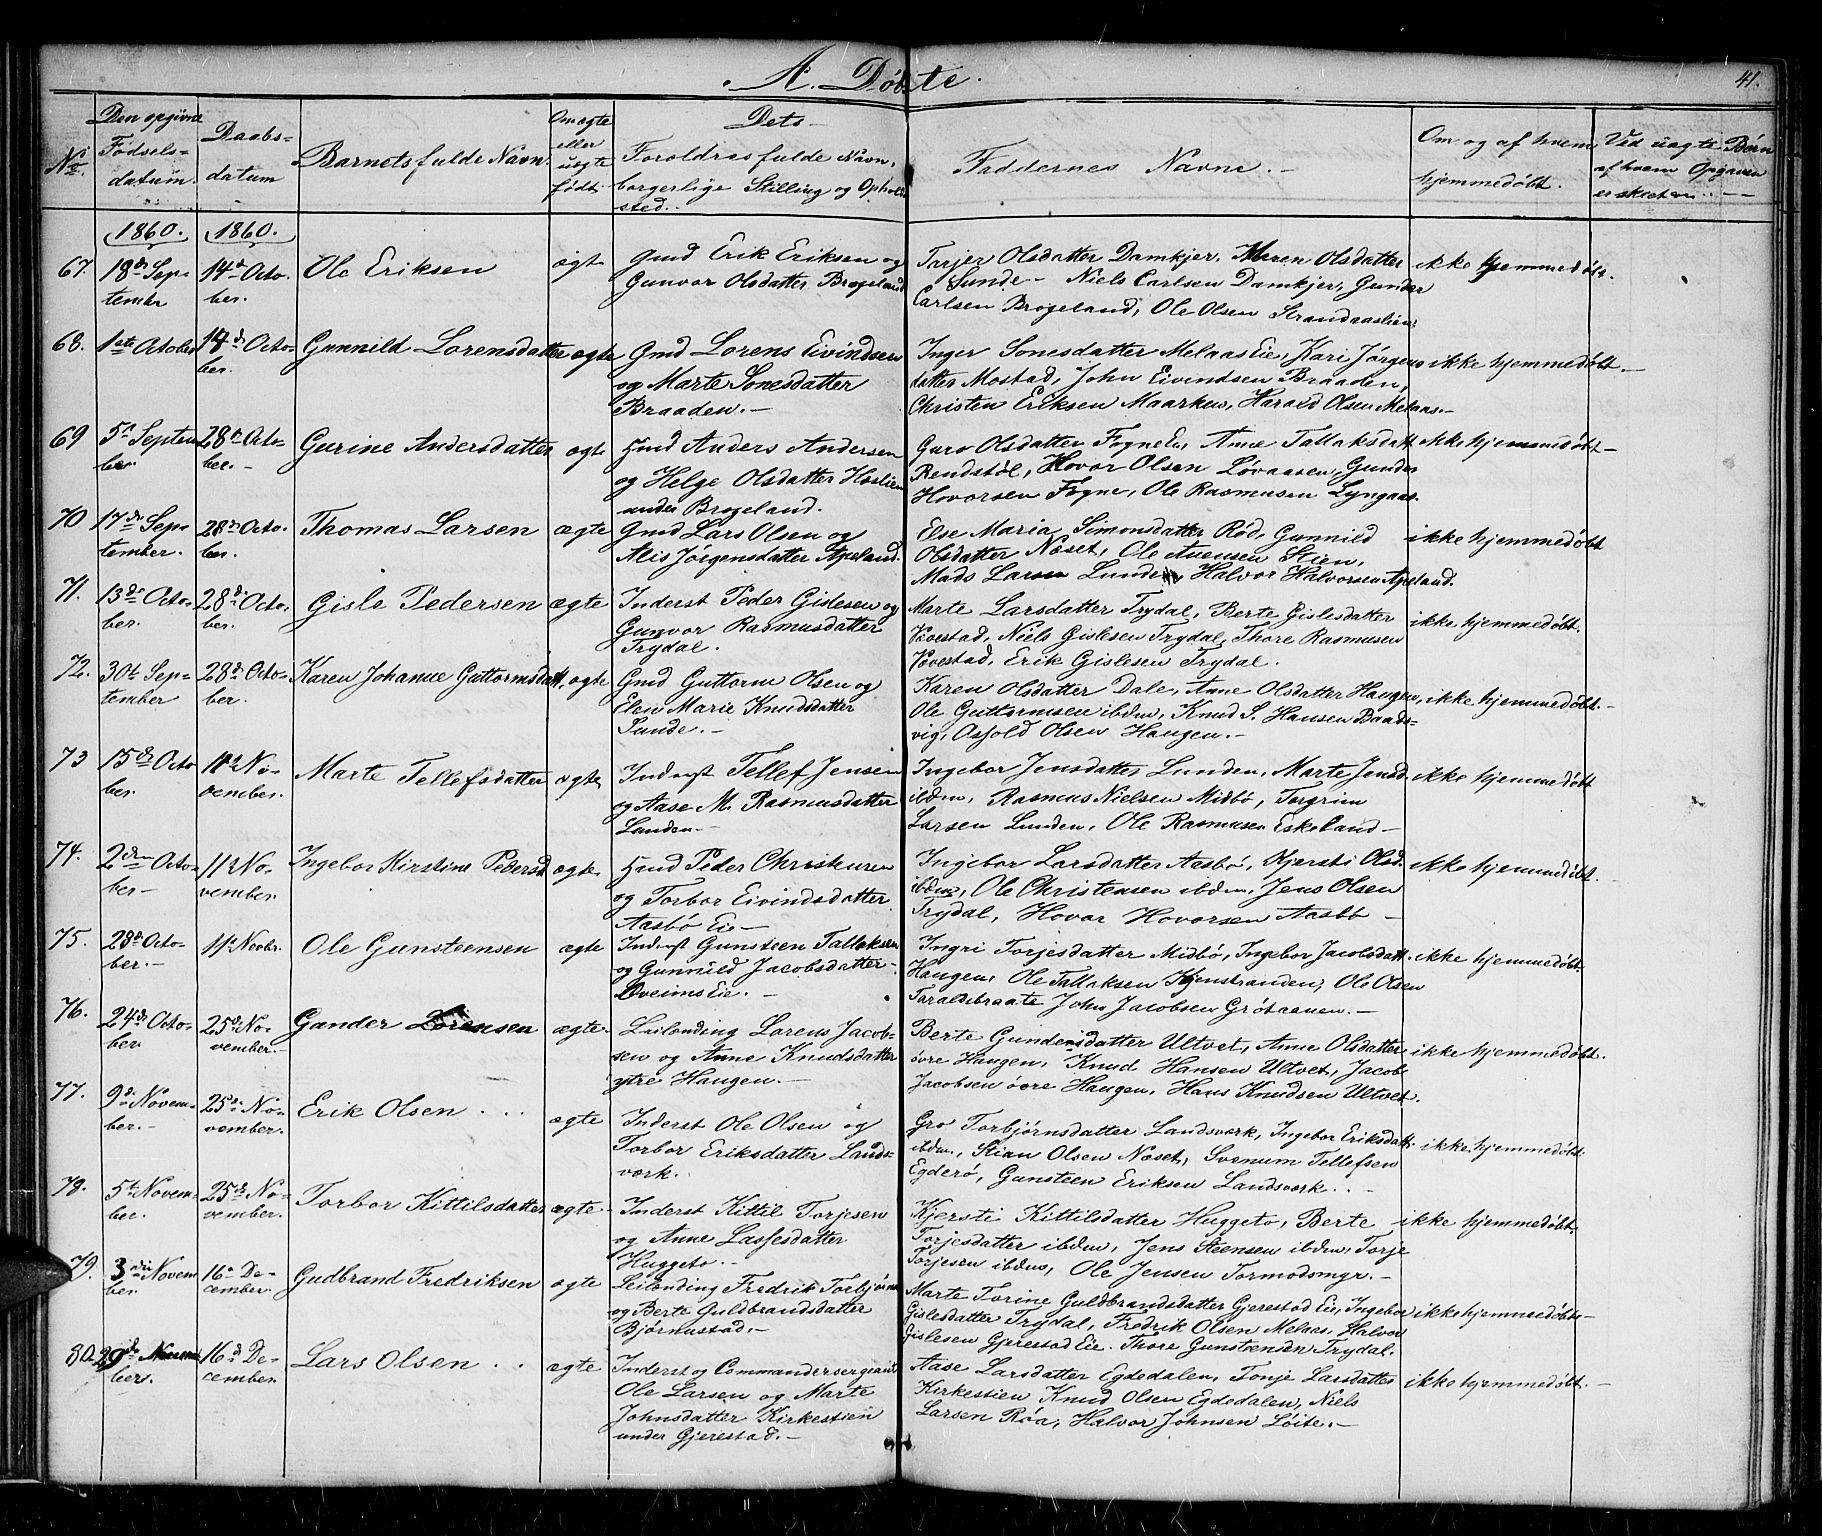 A. Døbte.
41.
No.
Den opgivne Fødsels-datum.
Daabs-datum
Barnets fulde Navn.
Om ægte eller uægte født.
Dets Forældres fulde Navn, borgerlige Stilling og Opholdsted.
Faddernes Navne.
Om og af hvem hjemmedøbt.
Ved uægte Børn af hvem Opgaven er skeet
1860. 1860.
67. 18de September 14de October. Ole Eriksen ægt Gmd Erik Eriksen og
Gunvor Olsdatter Brogeland
Tarjer Olsdatter Damkjer, Maren Olsdatter
Sunde - Niels Carlsen Damkjer, Gunder
Carlsen Brogeland, Ole Olsen Strandaaslien
ikke hjemmedøbt.
68. 1ste October 14de October. Gunnild Lorensdatter ægte Gmd Lorens Eivindsen
og Marte Sonesdatter
Braaden. -
Inger Sonesdatter Melaas Eie, Kari Jørgens
datter Mostad, John Eivindsen Braaden,
Christen Eriksen Maarken, Harald Olsen Melaas. -
ikke hjemmedøbt. -
69 5te September 28de October. - Gurine Andersdatter ægte Hmd Anders Andersen
og Helge Olsdatter Haslien
under Brogeland.
Guro Olsdatter Fogne Ei, Anne Tallaksdatt
Rendstøl, Hovor Olsen Løvaasen, Gunder
Hovorsen Fogne, Ole Rasmusen Lyngaas
ikke hjemmedøbt -
70 17de September. 28de October. Thomas Larsen ægte Gmd Lars Olsen og
Alis Jørgensdatter Apeland.
Else Maria Simonsdatter Rød, Gunnild
Olsdatter Næset, Ole Auensen Stien,
Mads Larsen Lunden, Halvor Halvorsen Apeland.
ikke hjemmedøbt
71. 13de October. 28de October. Gisle Pedersen ægte Inderst Peder Gislesen og
Gunvor Rasmusdatter
Trydal.
Marte Larsdatter Trydal, Berte Gislesdatter
Vævestad, Niels Gislesen Trydal, Thore Rasmusen
Vævestad, Erik Gislesen Trydal.
ikke hjemmedøbt.
72. 30te September 28de October. Karen Johanne Guttormsdatt. ægte Gmd Guttorm Olsen og
Elen Marie Knudsdatter
Sunde. -
Karen Olsdatter Dale, Anne Olsdatter Haugen,
Ole Guttormsen ibdm, Knud S. Hansen Baads-
vig, Osfold Olsen Haugen. -
ikke hjemmedøbt. -
73 15de October. 11te November. Marte Tellefsdatter ægte Inderst Tellef Jensen
og Aase M. Rasmusdatter
Lunden. -
Ingebor Jensdatter Lunden, Marte Jensd.
ibdm, Rasmus Nielsen Midbø, Torgrim
Larsen Lunden, Ole Rasmusen Eskeland -
ikke hjemmedøbt
74. 2den October - 11te November. Ingebor Kirstine Pedersd ægte Hmd Peder Christensen
og Torbor Eivindsdatter
Aasbø Eie -
Ingebor Larsdatter Aasbø, Kjersti Olsd.
ibdm, Ole Christensen ibdm, Jens Olsen
Trydal, Hovor Hovorsen Aasbø -
ikke hjemmedøbt. -
75. 28de October. - 11te Novbr. Ole Gunsteensen ægte Inderst Gunsteen Tallaksen
og Gunnild Jacobsdatter
Oveims Eie. -
Ingri Torjesdatter Midbø, Ingebor Jacobsdatt.
Haugen, Ole Tallaksen Kjenstranden, Ole Olsen
Taraldsbraate John Jacobsen Grøtaenen. -
ikke hjemmedøbt
76. 24de October 25de November. - Gunder Lorensen ægte. Leilænding Lorens Jacob-
sen og Anne Knudsdatter
ytre Haugen. -
Berte Gundersdatter Ultvet, Anne Olsdatter
øvre Haugen, Knud Hansen Ultvet, Jacob
Jacobsen øvre Haugen, Hans Knudsen Ultvet.
ikke hjemmedøbt.
77. 9de November. - 25de November. Erik Olsen ægte Inderst Ole Olsen og
Torbor Eriksdatter Lands-
værk.
Gro Torbjørnsdatter Landsværk, Ingebor Eriksdatt.
ibdm, Stian Olsen Næset, Svenum Tellefsen
Egderø, Gunsteen Eriksen Landsværk. -
ikke hjemmedøbt.
78. 5te November. 25de November. Torbor Kittilsdatter ægte Inderst Kittil Torjesen
og Anne Lassesdatter
Huggeto. -
Kjersti Kittilsdatter Huggeto, Berte
Torjesdatter ibdm, Jens Steensen ibdm, Torje
Torjesen ibdm, Ole Jensen Tormodsmyr. -
ikke hjemmedøbt.
79. 3die November. 16de December. Gudbrand Fredriksen ægte Leilænding Fredrik Torbjørns
og Berte Guldbrandsdatter
Bjørnustad. -
Marte Torine Guldbrandsdatter Gjerestad Eie, Ingebor
Gislesdatter Trydal, Fredrik Olsen Melaas, Halvor
Gislesen Gjerestad Eie. Thore Gunstensen Trydal.
ikke hjemmedøbt.
80. 29de November. 16de December. Lars Olsen ægte Inderst og Commandersergeant
Ole Larsen og Marte
Johnsdatter Kirkestien
under Gjerestad. -
Aase Larsdatter Egdedalen, Tonje Larsdatter
Kirkestien Knud Olsen Egdedalen, Niels
Larsen Røa, Halvor Johnsen Løite. -
ikke hjemmedøbt. -